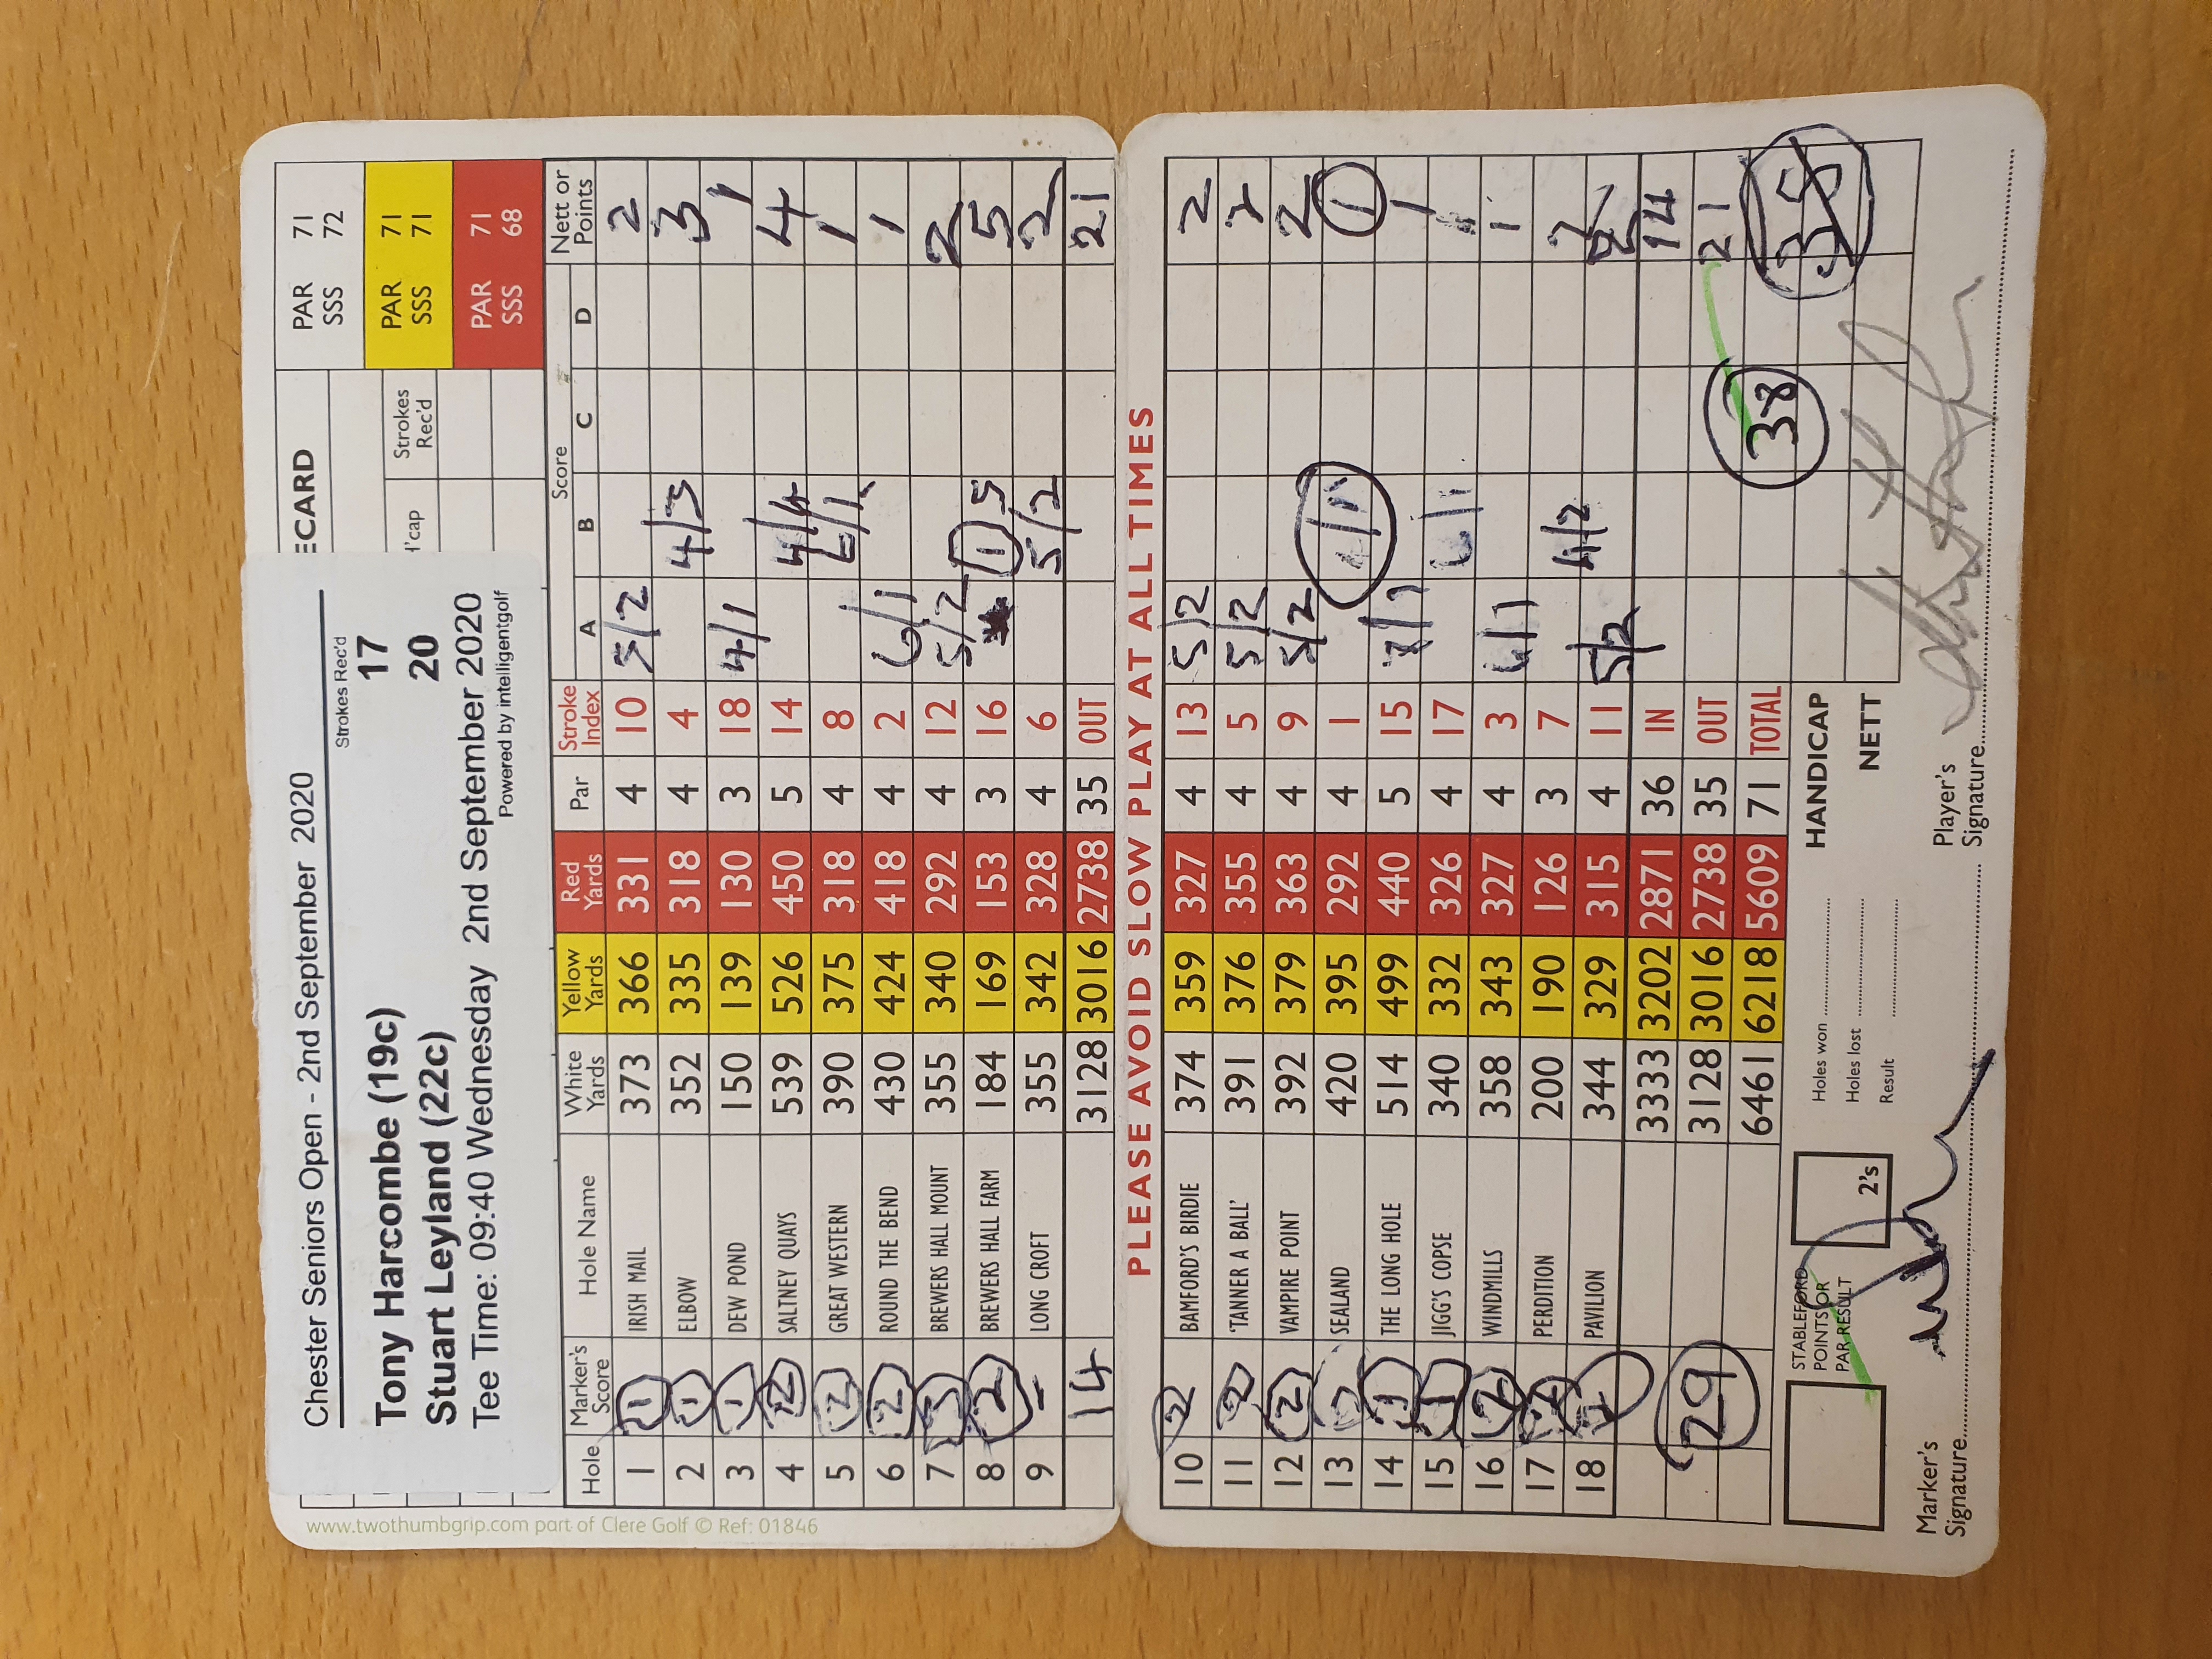 Chester Seniors Open - 2nd September 2020
Strokes Rec'd
Tony Harcombe (19c) 17
Stuart Leyland (22c) 20
Tee Time: 09:40 Wednesday 2nd September 2020
Powered by intelligentgolf
ECARD
H'cap Strokes Rec'd
PAR 71
SSS 72
PAR 71
SSS 71
PAR 71
SSS 68
Hole Marker's Score Hole Name White Yards Yellow Yards Red Yards Par Stroke Index Score A B C D Nett or Points
1 1 IRISH MAIL 373 366 331 4 10 5/2 2
2 1 ELBOW 352 335 318 4 4 4/3 3
3 1 DEW POND 150 139 130 3 18 4/1 1
4 2 SALTNEY QUAYS 539 526 450 5 14 4/4 4
5 2 GREAT WESTERN 390 375 318 4 8 6/1 1
6 2 ROUND THE BEND 430 424 418 4 2 6/1 1
7 3 BREWERS HALL MOUNT 355 340 292 4 12 5/2 2
8 2 BREWERS HALL FARM 184 169 153 3 16 1 5 5
9 - LONG CROFT 355 342 328 4 6 5/2 2
14 3128 3016 2738 35 OUT 21
PLEASE AVOID SLOW PLAY AT ALL TIMES
10 2 BAMFORD'S BIRDIE 374 359 327 4 13 5/2 2
11 2 'TANNER A BALL' 391 376 355 4 5 5/2 2
12 2 VAMPIRE POINT 392 379 363 4 9 5/2 2
13 SEALAND 420 395 292 4 1 1
14 1 THE LONG HOLE 514 499 440 5 15 1
15 1 JIGG'S COPSE 340 332 326 4 17 6/1 1
16 2 WINDMILLS 358 343 327 4 3 6/1 1
17 PERDITION 200 190 126 3 7 4/2 2
18 PAVILION 344 329 315 4 11 5/2 2
3333 3202 2871 36 IN 14
29 3128 3016 2738 35 OUT 21
6461 6218 5609 71 TOTAL 38 35
STABLEFORD
POINTS OR
PAR RESULT
2's
Holes won
Holes lost
Result
HANDICAP
NETT
Marker's
Signature
Player's
Signature
www.twothumbgrip.com part of Clere Golf © Ref: 01846